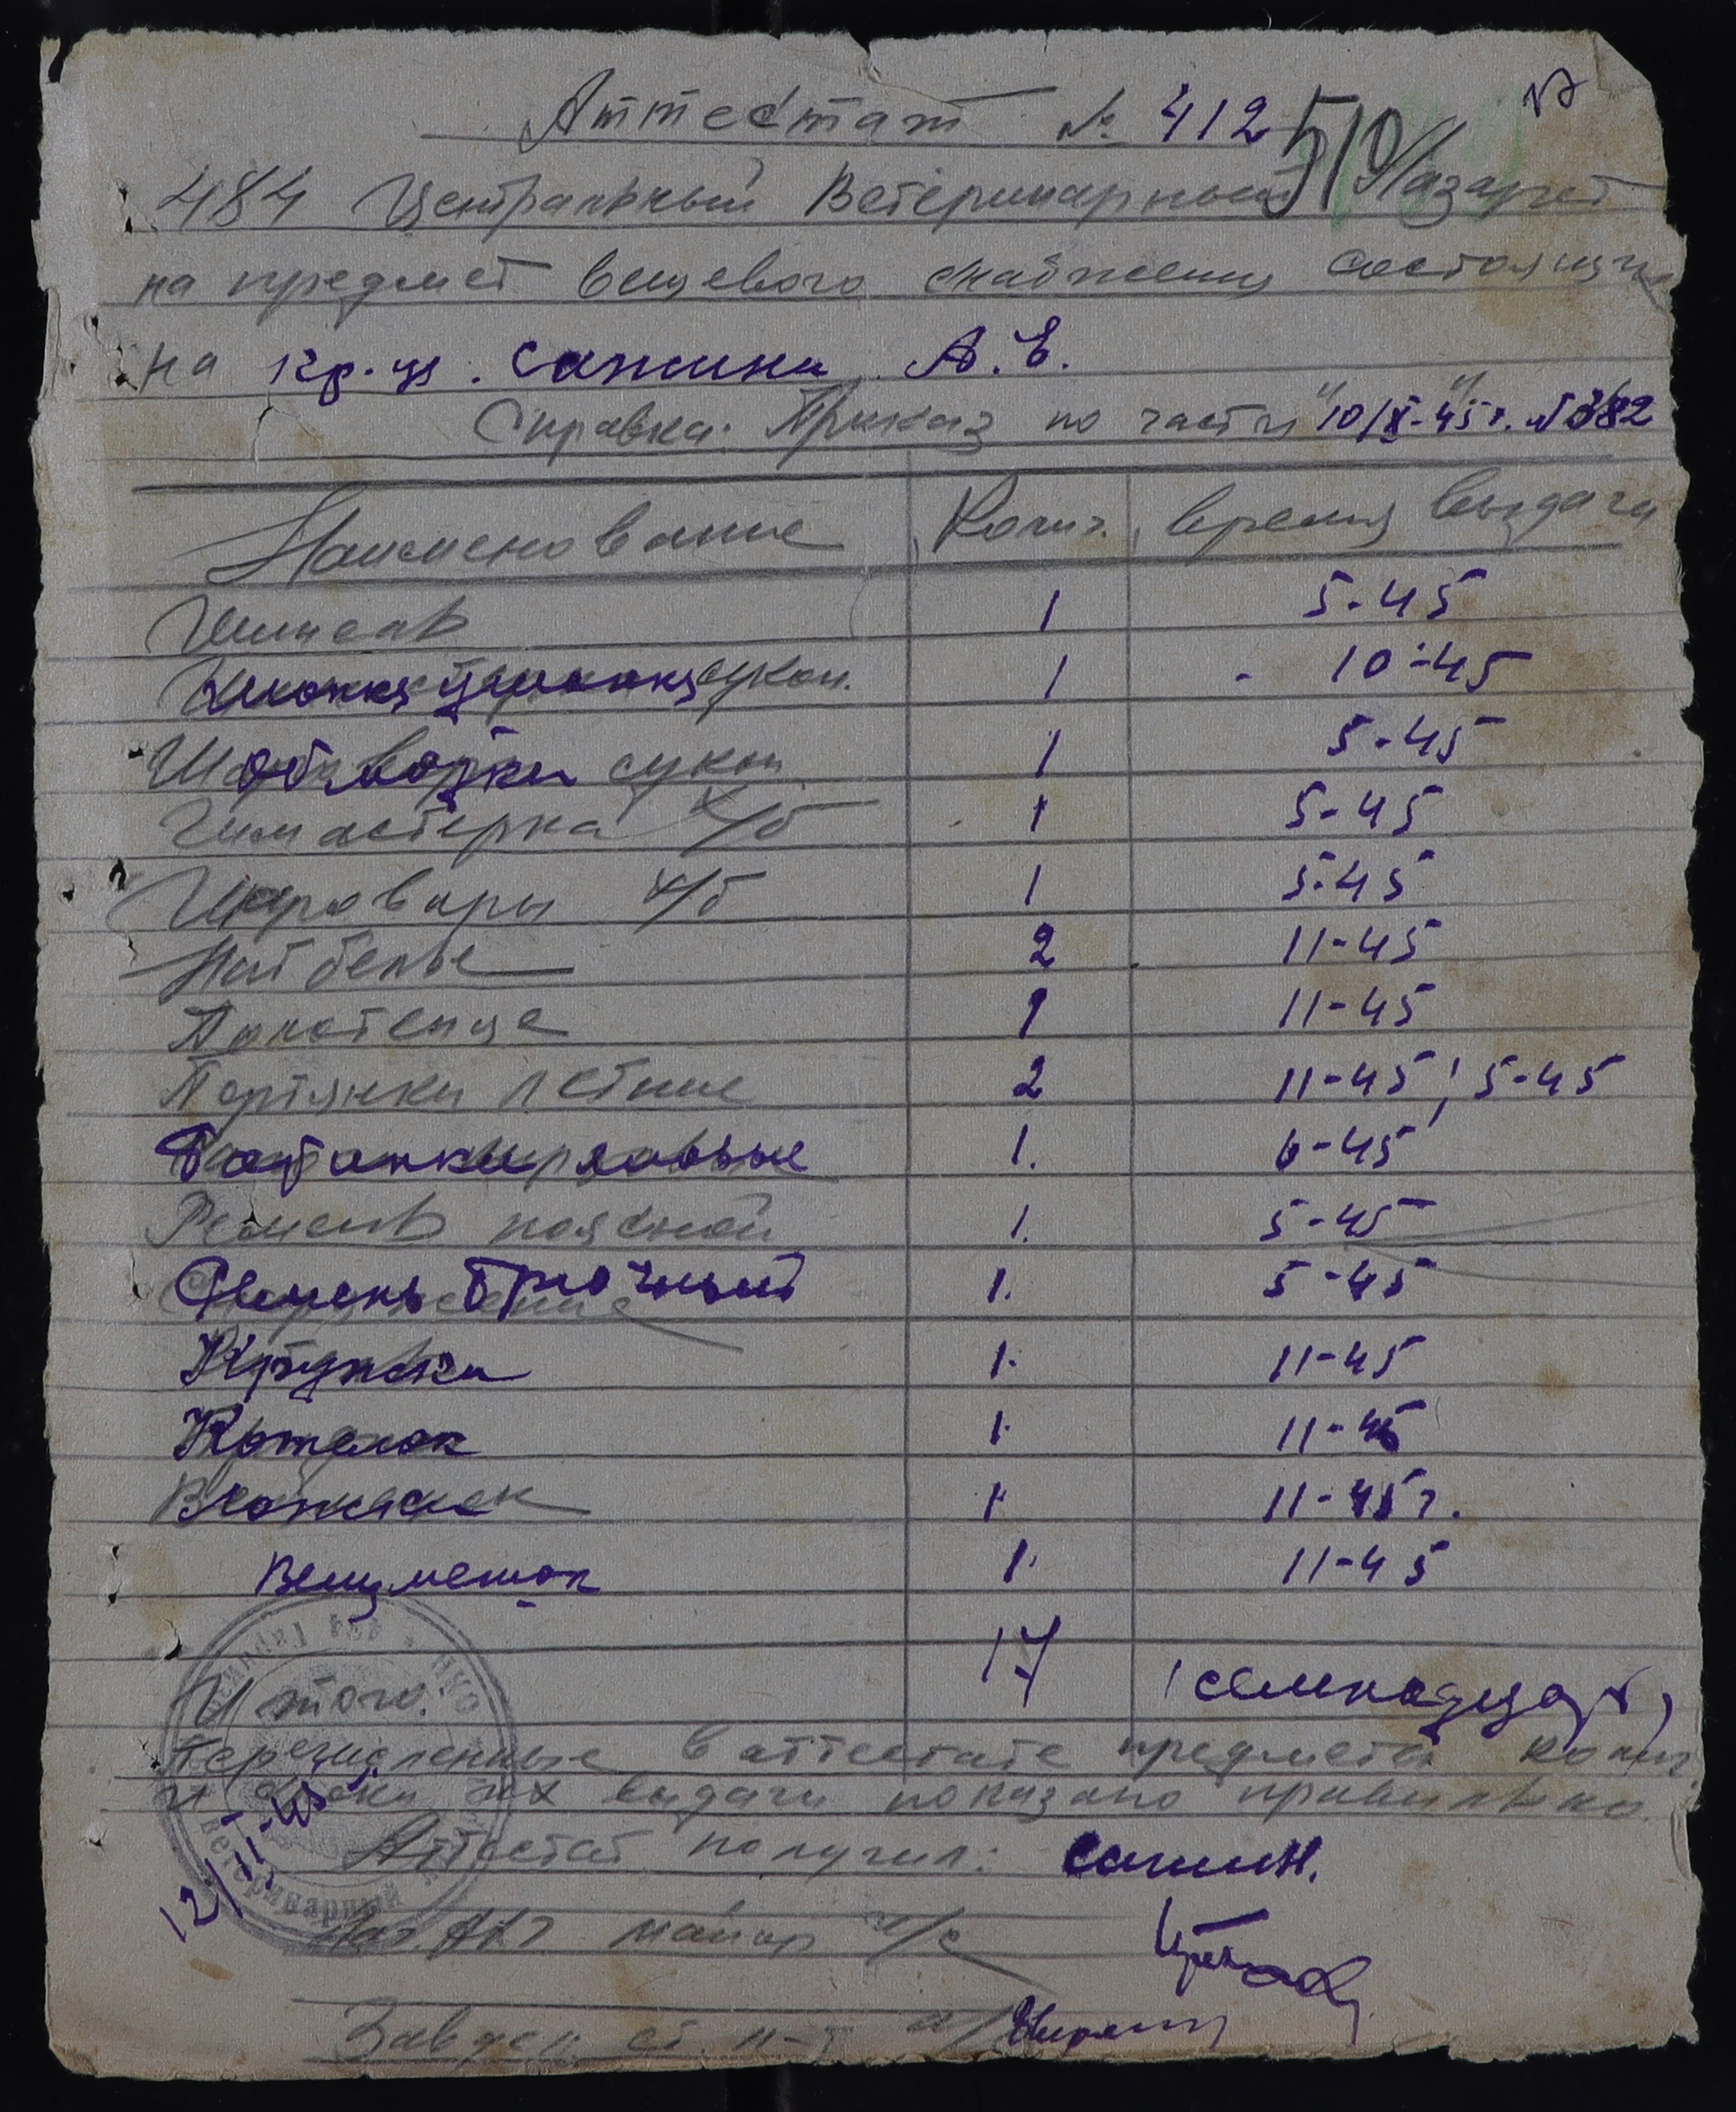 Аттестат № 412 510/
484 Центральный Ветеринарный Лазарет
на предмет вещевого снабжения состоящих
на кр-ца. Сажина А.Е.
Справка: Приказ по части 10/XI-45 г. № 382
Наименование Колич. время выдачи
Шинель 1 5-45
Шапка ушанка сукон. 1 10-45
Обмотки сукон. 1 5-45
Гимастерка х/б 1 5-45
Шаровары х/б 1 5-45
Нат белье 2 11-45
Полотенце 1 11-45
Портянки летние 2 11-45; 5-45
Ботинки 1. 6-45
Ремень поясной 1. 5-45
Ремень брючный 1. 5-45
Кружка 1. 11-45
Котелок 1. 11-45
1 11-45 г.
Вещмешок 1. 11-45
Итого: 17 (семнадцать)
Перечисленные в аттестате предметы колич.
и сроки их выдачи показано правильно.
12/XI-45
Аттестат получил: Сажин.
майор
Завдел. ст. л-т
ветеринарный